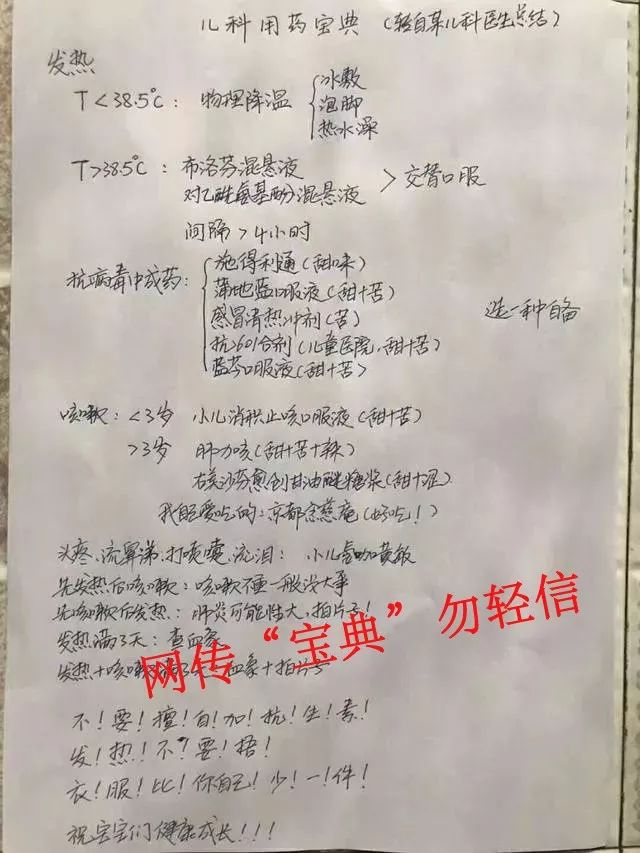 儿科用药宝典（轻自某儿科医生总结）
发热
T<38.5℃：物理降温 { 冰敷
泡脚
热水澡
T>38.5℃：布洛芬混悬液
对乙酰氨基酚分混悬液 > 交替口服
间隔>4小时
抗病毒中成药： { 施得利通（甜味）
蒲地蓝口服液（甜+苦）
感冒清热冲剂（苦） 选一种自备
抗601合剂（儿童医院，甜+苦）
蓝芩口服液（甜+苦）
咳嗽：<3岁 小儿消积止咳口服液（甜+苦）
>3岁 肺力咳（甜+苦+辣）
右美沙芬愈创甘油醚糖浆（甜+涩）
我自己爱吃的：京都念慈庵（好吃！）
头疼、流鼻涕、打喷嚏、流泪：小儿氨咖黄敏
先发热后咳嗽：咳嗽不重一般没大事
先咳嗽后发热：肺炎可能性大，拍片子！
发热满3天：查血象
发热+咳嗽满3天：血象+拍片子
网传“宝典”勿轻信
不！要！擅！自！加！抗！生！素！
发！热！不！要！捂！
衣！服！比！你自己！少！一！件！
祝宝宝们健康成长！！！